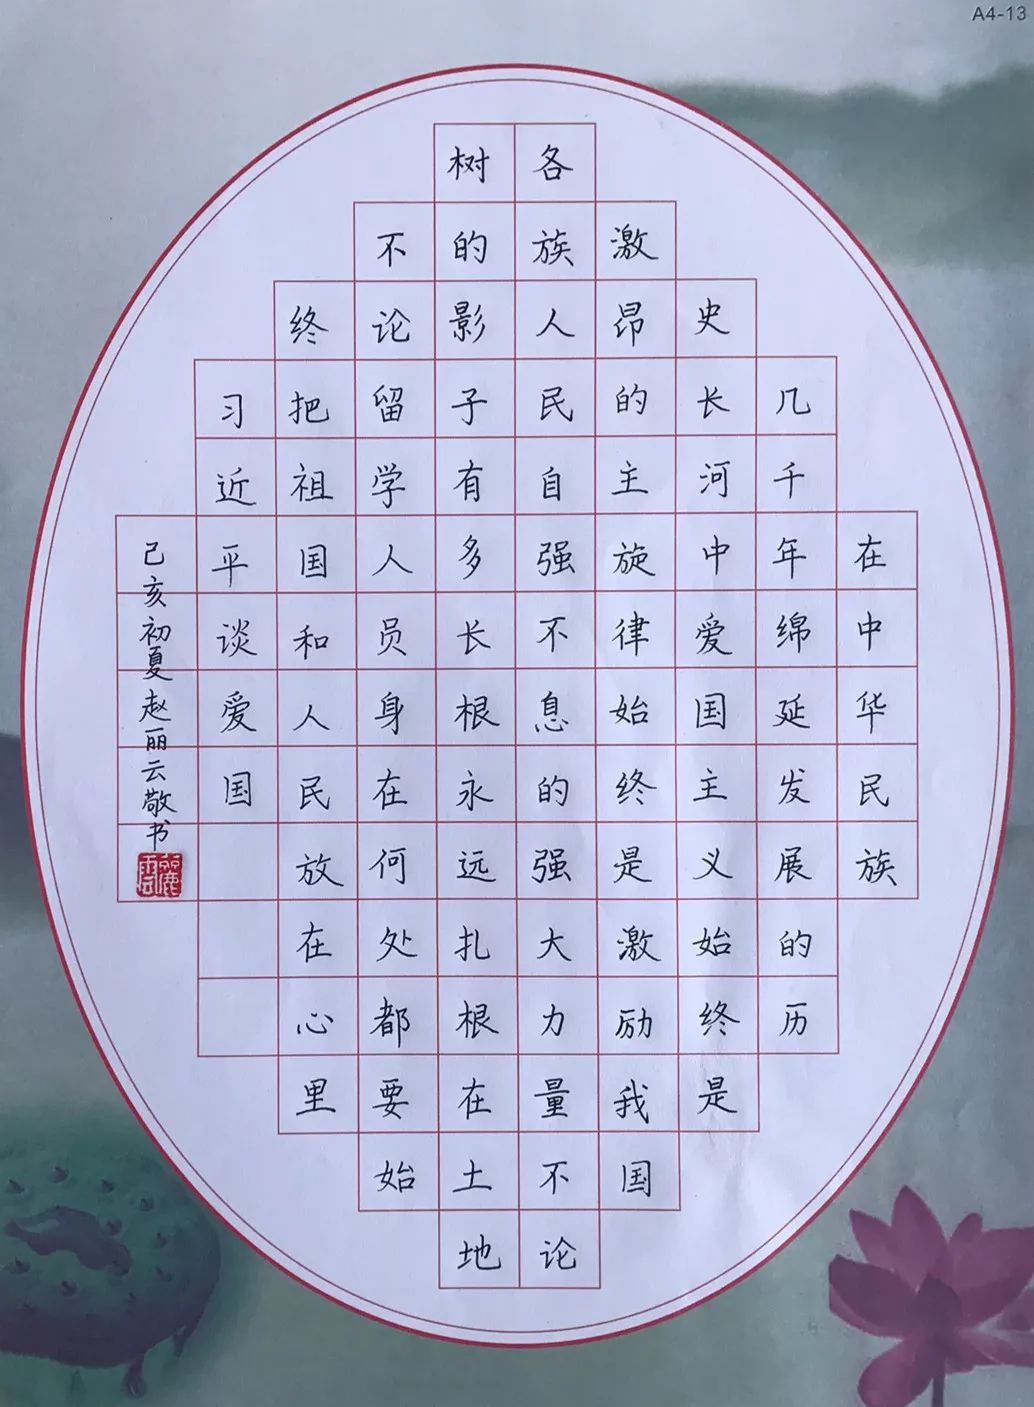 A4-13
在中华民族
几千年绵延发展的历
史长河中爱国主义始终是
激昂的主旋律始终是激励我国
各族人民自强不息的强大力量不论
树的影子有多长根永远扎根在土地
不论留学人员身在何处都要始
终把祖国和人民放在心里
习近平谈爱国
己亥初夏赵丽云敬书
麗雲